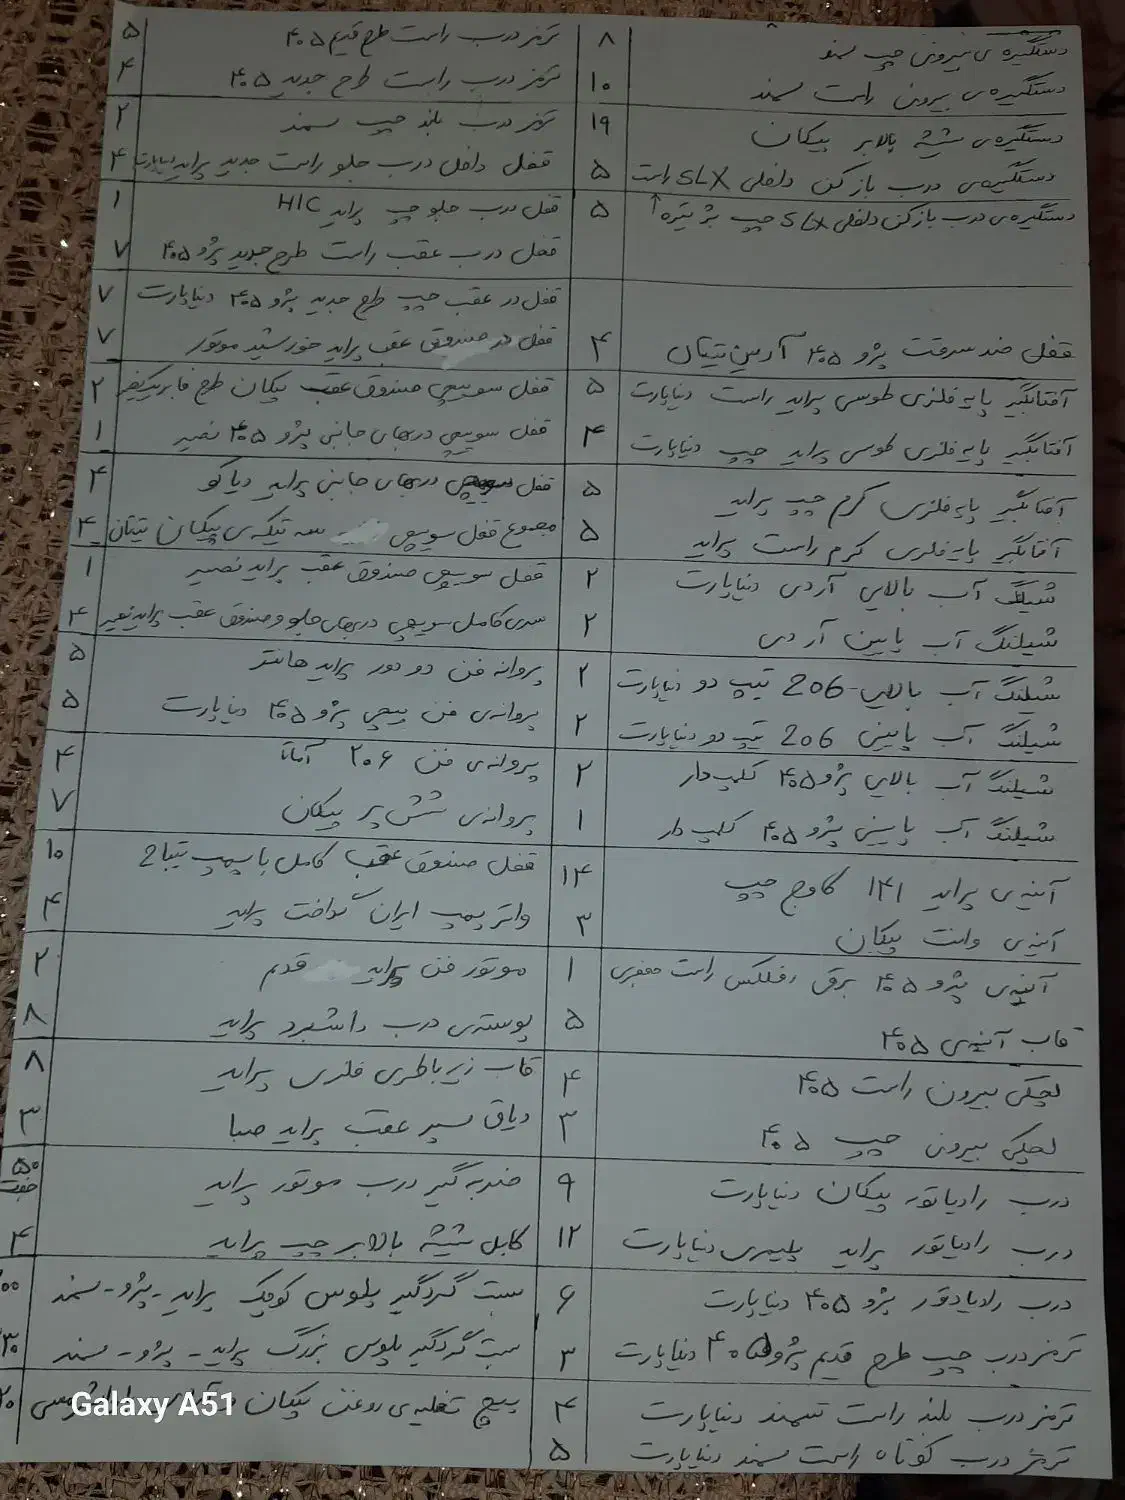 دستگیره ی بیرونی چپ سمند ۸
دستگیره ی بیرون راست سمند ۱۰
دستگیره ی شیشه بالابر پیکان ۱۹
دستگیره ی درب باز کن داخلی SLX راست ۵
دستگیره ی درب باز کن داخلی SLX چپ ۵
قفل ضد سرقت پژو ۴۰۵ آرمین تیتان ۴
آفتابگیر پایه فلزی طوسی پراید راست دنیاپارت ۵
آفتابگیر پایه فلزی طوسی پراید چپ دنیاپارت ۴
آفتابگیر پایه فلزی کرم چپ پراید ۵
آفتابگیر پایه فلزی کرم راست پراید ۵
شیلنگ آب بالایی آردی دنیاپارت ۲
شیلنگ آب پایین آردی ۲
شیلنگ آب بالایی 206 تیپ دو دنیاپارت ۲
شیلنگ آب پایینی 206 تیپ دو دنیاپارت ۲
شیلنگ آب بالایی پژو ۴۰۵ کلیپ دار ۲
شیلنگ آب پایینی پژو ۴۰۵ کلیپ دار ۱
آینه ی پراید ۱۴۱ کاوج چپ ۱۴
آینه ی وانت پیکان ۳
آینه ی پژو ۴۰۵ برقی رفلکس راست جعفری ۱
قاب آینه ی ۴۰۵ ۵
لچکی بیرون راست ۴۰۵ ۴
لچکی بیرونی چپ ۴۰۵ ۳
درب رادیاتور پیکان دنیاپارت ۹
درب رادیاتور پراید پلیمری دنیاپارت ۱۲
درب رادیاتور پژو ۴۰۵ دنیاپارت ۶
ترمز درب چپ طرح قدیم پژو ۴۰۵ دنیاپارت ۳
ترمز درب بلند راست سمند دنیاپارت ۴
ترمز درب کوتاه راست سمند دنیاپارت ۵
ترمز درب راست طرح قدیم ۴۰۵ ۵
ترمز درب راست طرح جدید ۴۰۵ ۴
ترمز درب بلند چپ سمند ۲
قفل داخل درب جلو راست جدید پراید دنیاپارت ۴
قفل درب جلو چپ پراید HIC ۱
قفل درب عقب راست طرح جدید پژو ۴۰۵ ۷
قفل در عقب چپ طرح جدید پژو ۴۰۵ دنیاپارت ۷
قفل در صندوق عقب پراید خورشید موتور ۷
قفل سوییچی صندوق عقب پیکان طرح فابریک ۲
قفل سوییچی دربهای جانبی پژو ۴۰۵ نصیر ۱
قفل دربهای جانبی پراید دیاکو ۴
مجموع قفل سویچی سه تیکه ی پیکان تیتان ۴
قفل سوییچی صندوق عقب پراید نصیر ۱
سری کامل سویچی دربهای جلو و صندوق عقب پراید نصیر ۴
پروانه فن دو دور پراید هانتر ۵
پروانه ی فن پیچی پژو ۴۰۵ دنیاپارت ۵
پروانه ی فن ۲۰۶ آماتا ۴
پروانه ی شش پر پیکان ۷
قفل صندوق عقب کامل با پمپ تیبا 2 ۱۰
واتر پمپ ایران گداخت پراید ۴
موتور فن پراید قدیم ۲
پوسته ی درب داشبرد پراید ۸
قاب زیر باطری فلزی پراید ۸
دیاق سپر عقب پراید صبا ۳
ضربه گیر درب موتور پراید ۵۰ جفت
کابل شیشه بالابر چپ پراید ۴
ست گردگیر پلوس کوچک پراید - پژو - سمند
ست گردگیر پلوس بزرگ پراید - پژو - سمند
پیچ تخلیه ی روغن پیکان
Galaxy A51